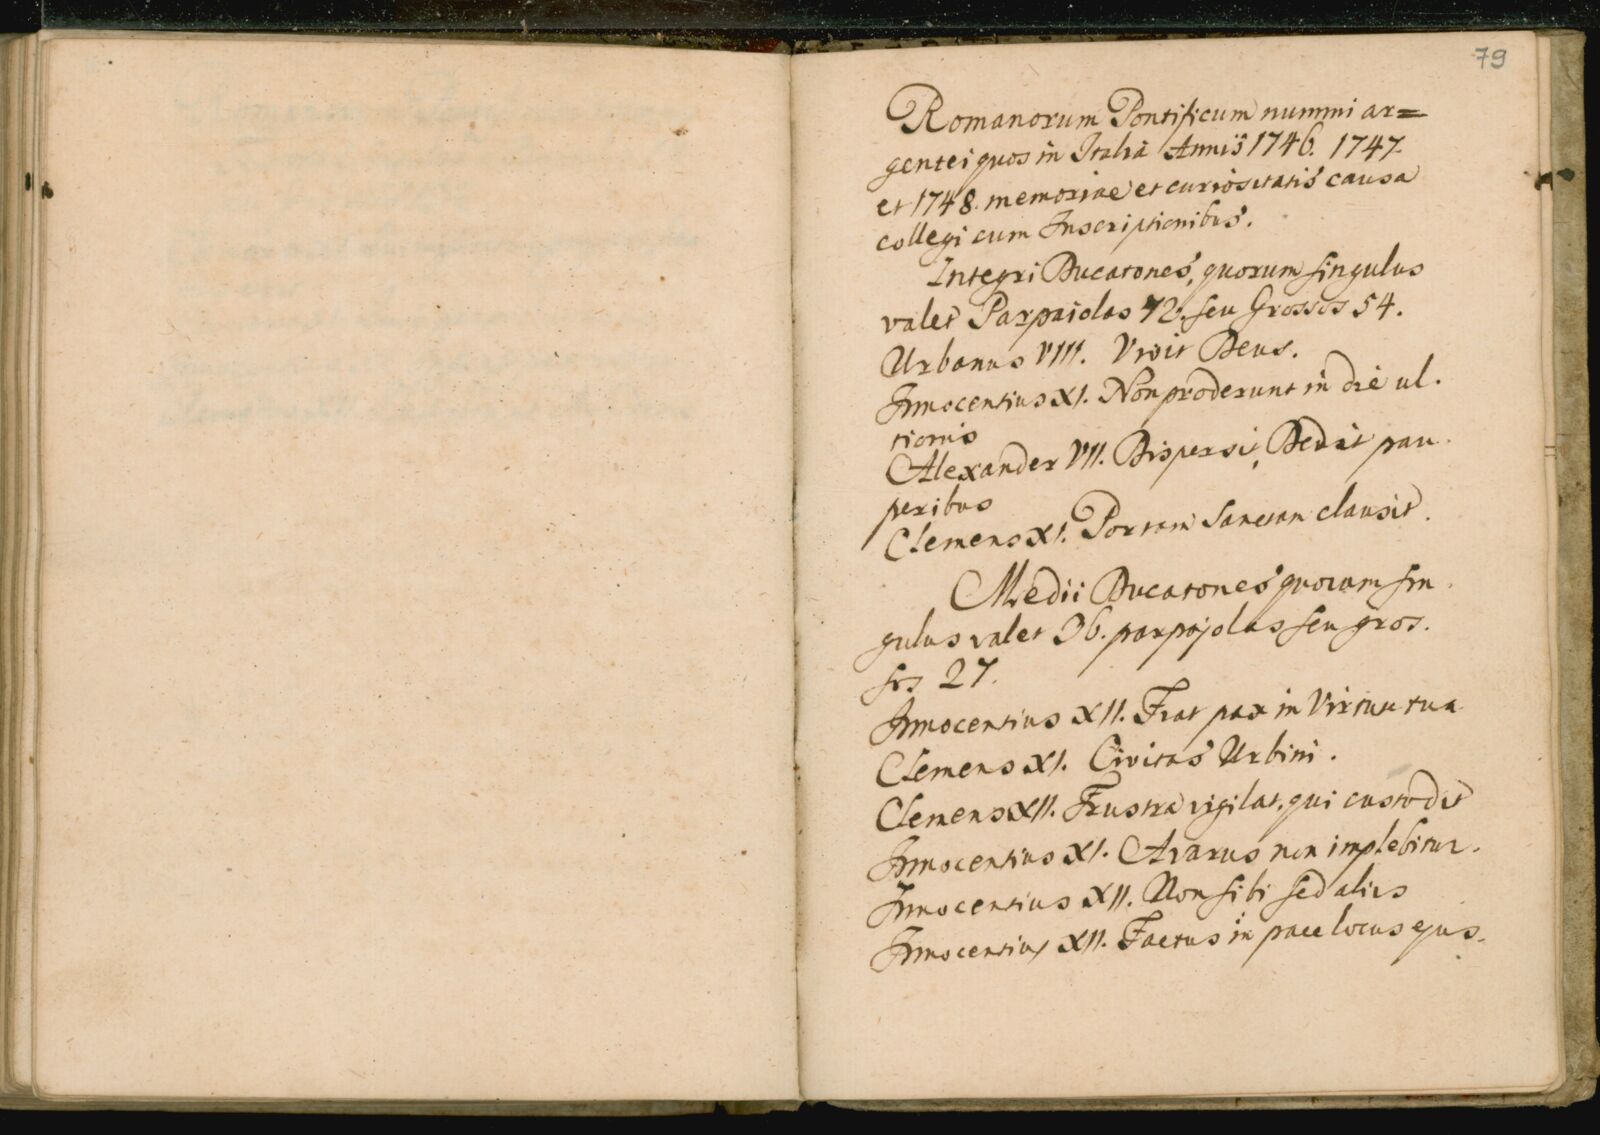 79
Romanorum Pontificum nummi ar=
gentei quos in Italia Annis 1746. 1747.
et 1748. memoriae et curiositatis causa
collegi cum Inscriptionibus.
Integri Ducatones, quorum singulus
valet Parpaiolas 72. seu Grossos 54.
Urbanus VIII. Vivit Deus.
Innocentius XI. Non proderunt in die ul.
tionis
Alexander VII. Dispersit, Dedit pau.
peribus
Clemens XI. Portam Sanctam clausit.
Medii Ducatones quorum sin.
gulus valet 36. parpajolas seu gros.
sos 27.
Innocentius XII. Fiat pax in Virtute tua
Clemens XI. Civitas Urbini.
Clemens XII. Frustra vigilat, qui custodit
Innocentius XI. Avarus non implebitur.
Innocentius XII. Non sibi sed aliis
Innocentius XII. Factus in pace locus ejus.